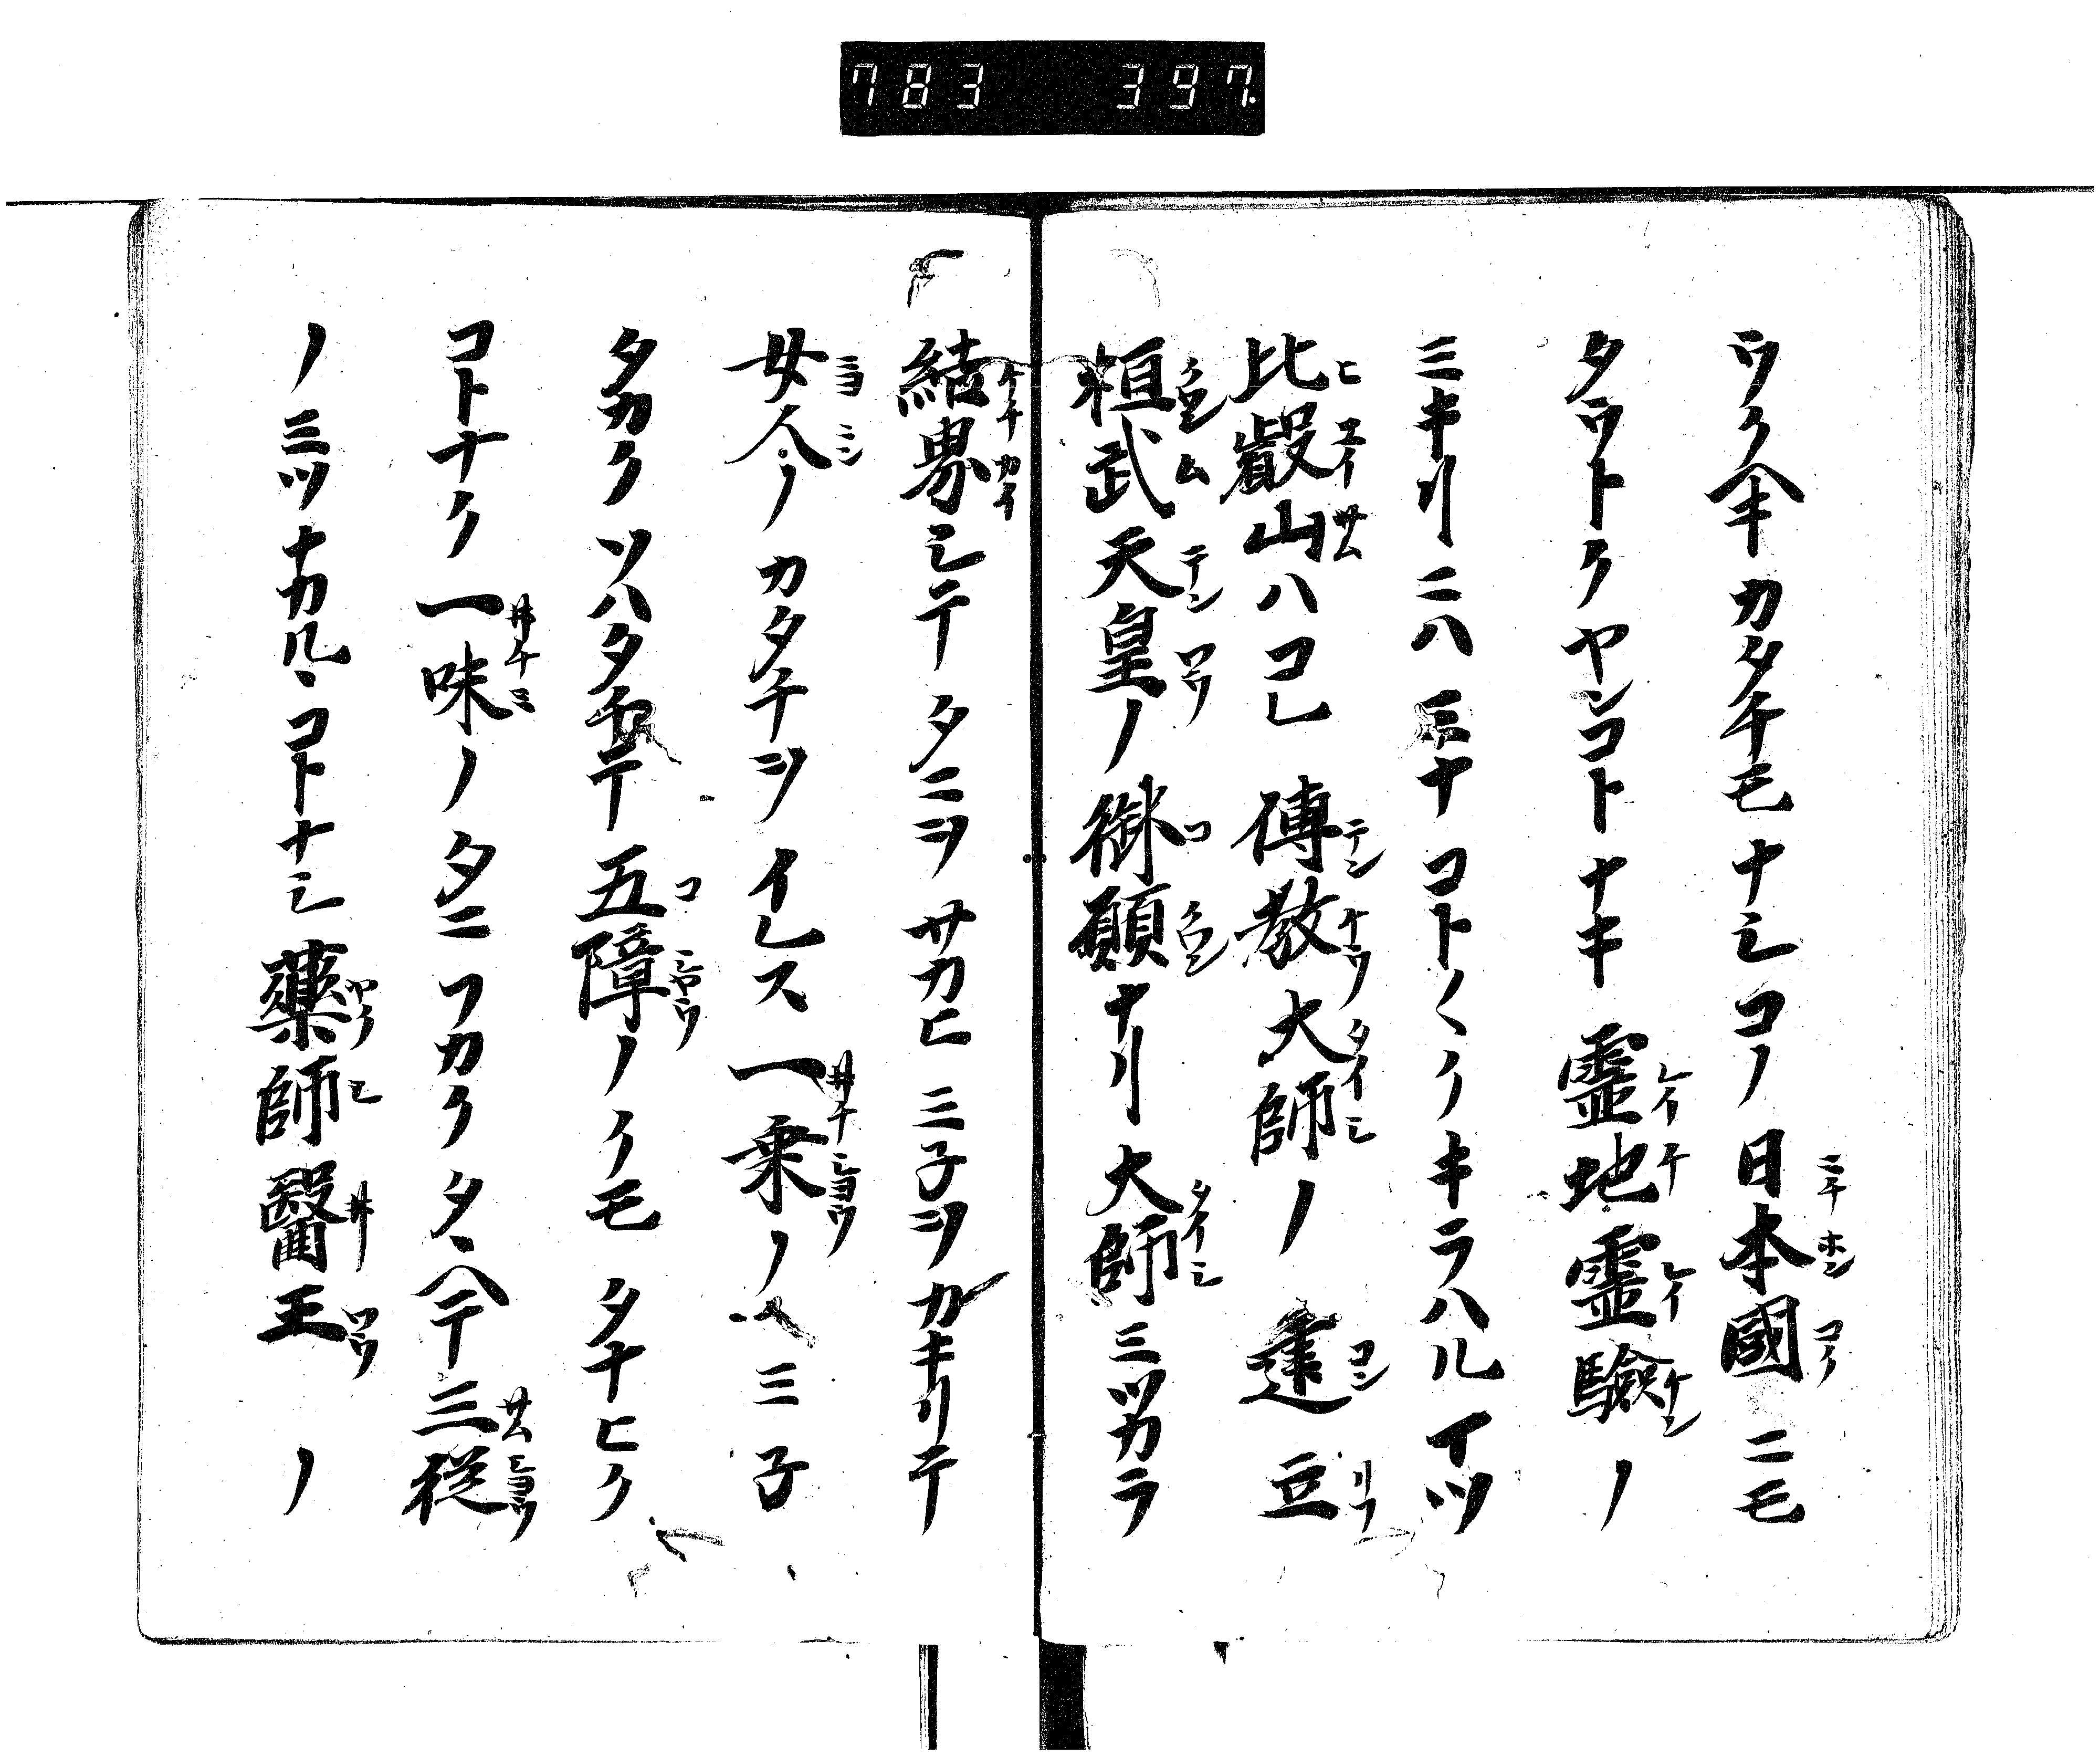 783 397.
ウクヘキカタチモナシコノ日本國ニモ
タウトクヤンコトナキ靈地靈驗ノ
ミキリニハミナコト〱クキラハルイツ
比叡山ハコレ傳教大師ノ建立
桓武天皇ノ御願ナリ大師ミツカラ
結界シテタニヲサカヒミ子ヲカキリテ
女人ノカタチヲイレス一乗ノミ子
タカクソハタチテ五障ノクモタナヒク
コトナク一味ノタニフカクタヽヘテ三從
ノミツナカルヽコトナシ藥師醫王ノ